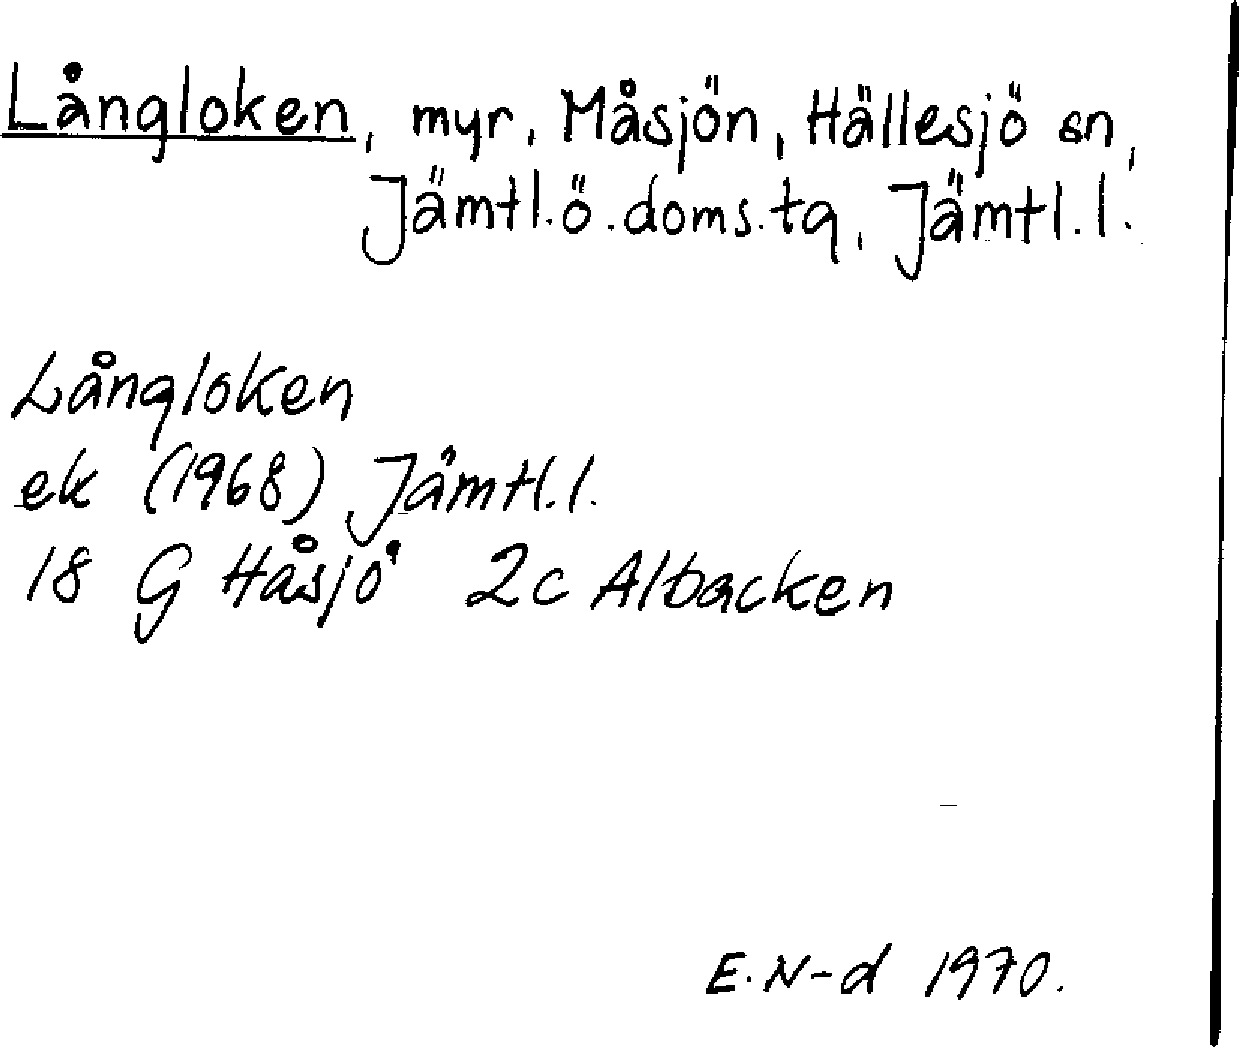 Långloken, myr, Måsjön, Hällesjö sn,
Jämtl.ö.doms.tg, Jämtl.l.
Långloken
ek (1968) Jämtl.l.
18 G Håsjö 2c Albacken
E.N-d 1970.